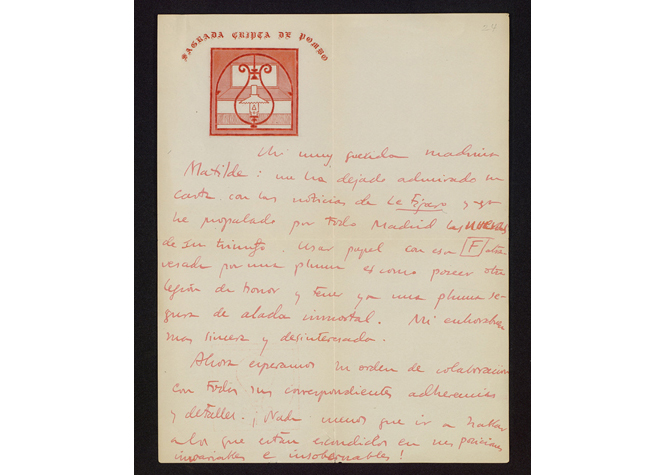 24
SAGRADA CRIPTA DE POMBO
Mi muy querida madrina
Matilde: me ha dejado admirado su
carta con las noticias de Le Figaro y yo
he propalado por todo Madrid las nuevas
de su triunfo. Usar papel con esa F atra-
vesada por una pluma es como poseer otra
legión de honor y tener ya una pluma se-
gura de alada inmortal. Mi enhorabuena
mas sincera y desinteresada.
Ahora esperamos su orden de colaboracion
con todos sus correspondientes adherencias
y detalles. ¡Nada menos que ir a hablar
a los que están escondidos en sus posiciones
invariables e insobornables!